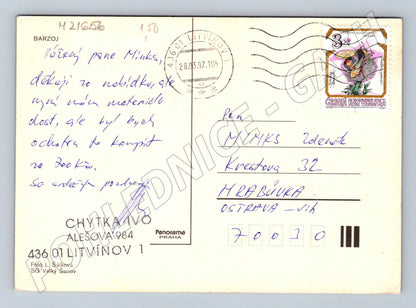 M21656 1,50
BARZOJ
Vážený pane Minks,
děkuji za nabídku, ale
nyní mám materiálu
dost, ale byl bych
ochoten to koupit
za 200Kčs.
Se srdečným pozdravem
CHYTKA IVO
ALEŠOVA 984
436 01 LITVÍNOV 1
Foto L. Sálková
SG Velký Šenov
Panorama
PRAHA
436 01 LITVÍNOV 1
28.03.97.10
3
Pan
MINKS Zdeněk
Krestova 32
HRABŮVKA
OSTRAVA - jih
70030
POHLEDNICE